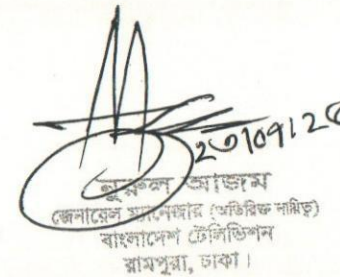 ২৩/০৭/২৫
নুরুল আজম
জেনারেল ম্যানেজার (অতিরিক্ত দায়িত্ব)
বাংলাদেশ টেলিভিশন
রামপুরা, ঢাকা।